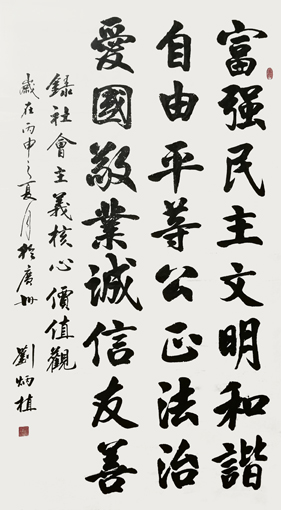 富强民主文明和諧
自由平等公正法治
愛國敬業誠信友善
錄社會主義核心價值觀
歲在丙申之夏月於廣州
劉炳植